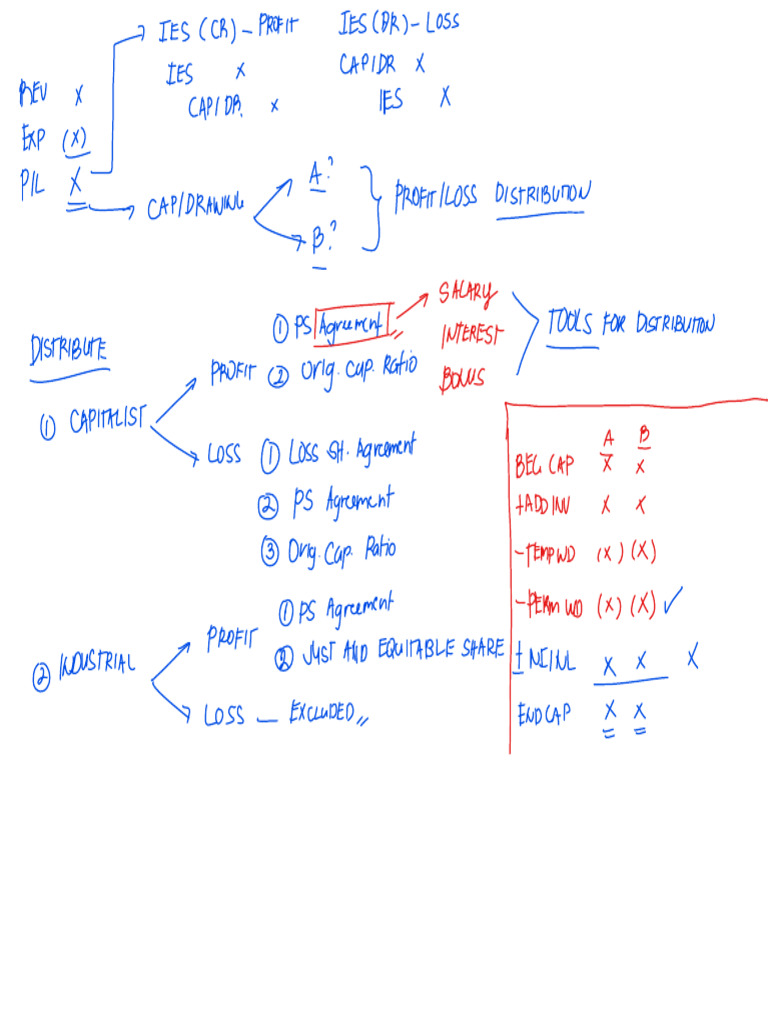 IES (CR) - PROFIT IES (DR) - LOSS
IES X CAP/DR X
CAP/DR. X IES X
REV X
EXP (X)
P/L X
CAP/DRAWING
A?
B?
PROFIT/LOSS DISTRIBUTION
DISTRIBUTE
① CAPITALIST
PROFIT
① PS Agreement
② Orig. Cap. Ratio
SALARY
INTEREST
BONUS
TOOLS FOR DISTRIBUTION
LOSS
① LOSS SH. Agreement
② PS Agreement
③ Orig. Cap. Ratio
② INDUSTRIAL
PROFIT
① PS Agreement
② JUST AND EQUITABLE SHARE
LOSS — EXCLUDED
A B
BEG CAP X X
+ADD INV X X
-TEMP WD (X) (X)
-PERM WD (X) (X) ✓
±NI/NL X X X
END CAP X X